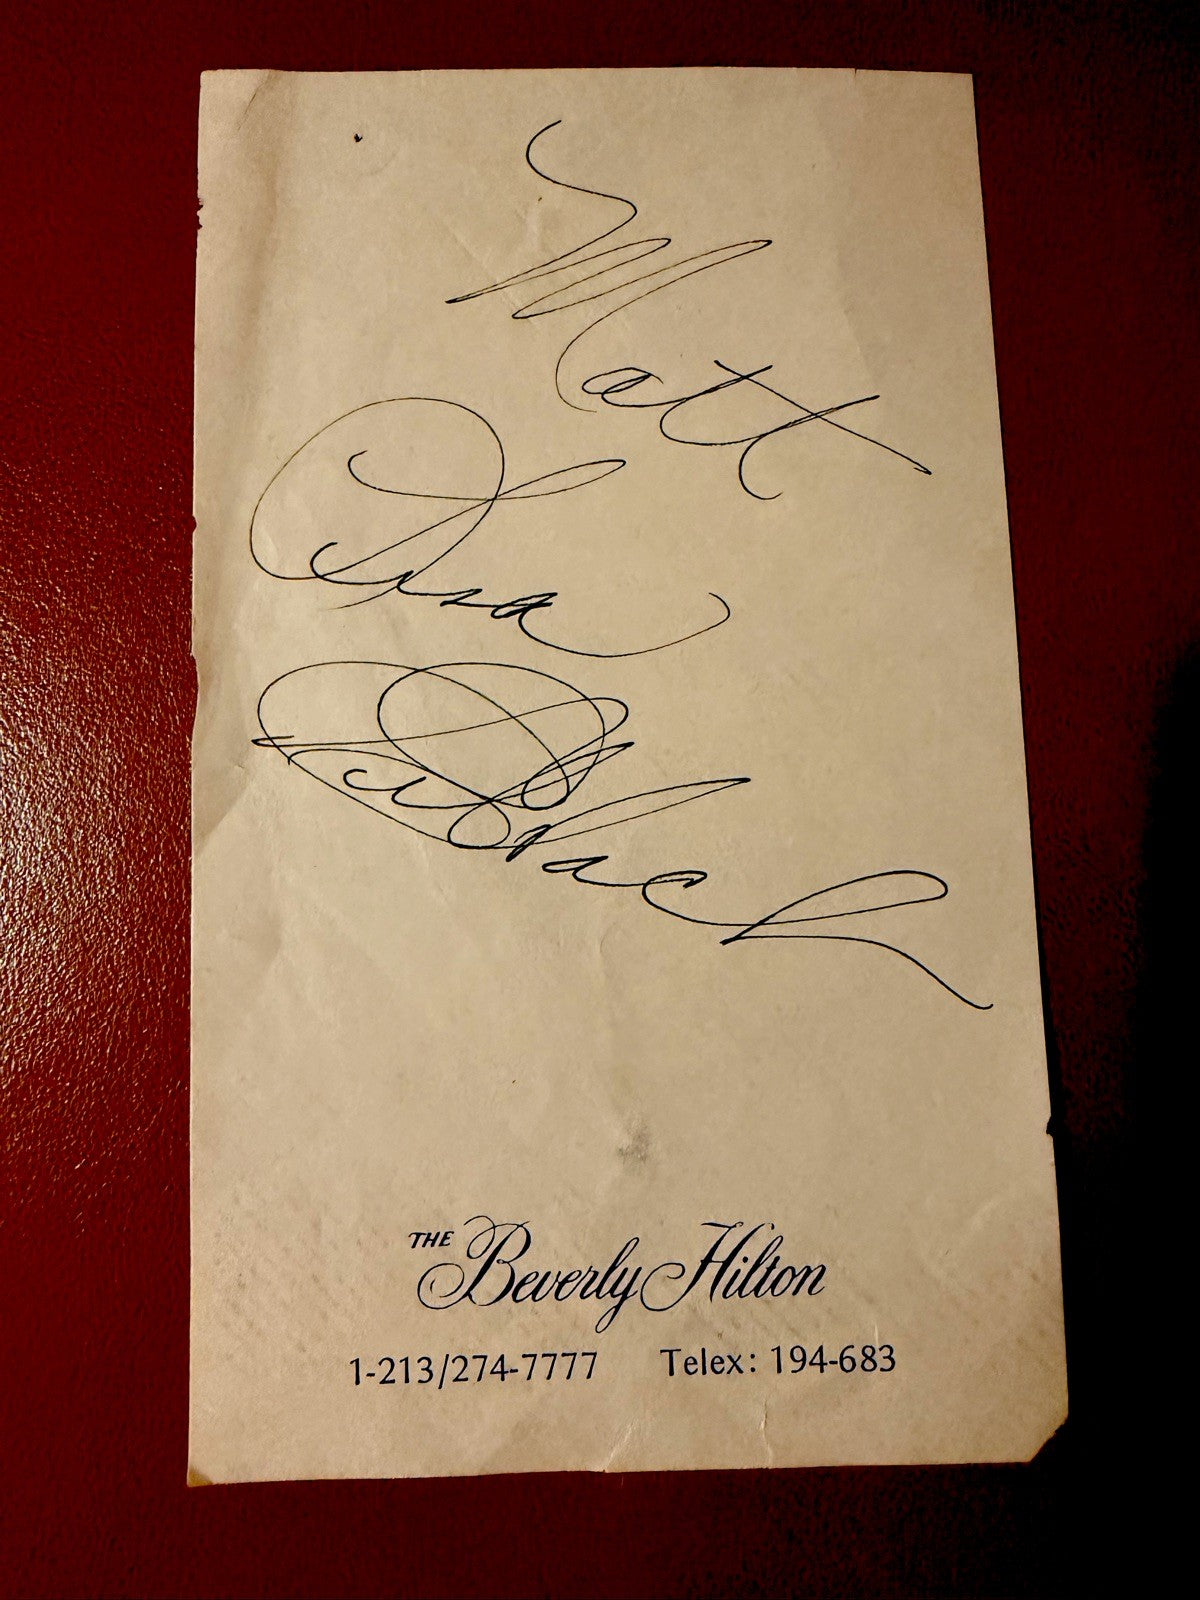 Matt
THE Beverly Hilton
1-213/274-7777 Telex: 194-683